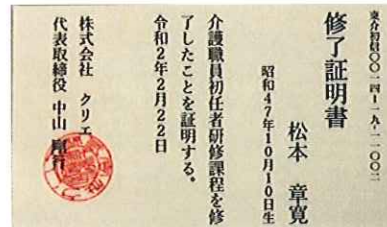 修了証明書
松本 章寛
昭和47年10月10日生
介護職員初任者研修課程を修
了したことを証明する。
令和2年2月22日
株式会社 クリエ
代表取締役 中山